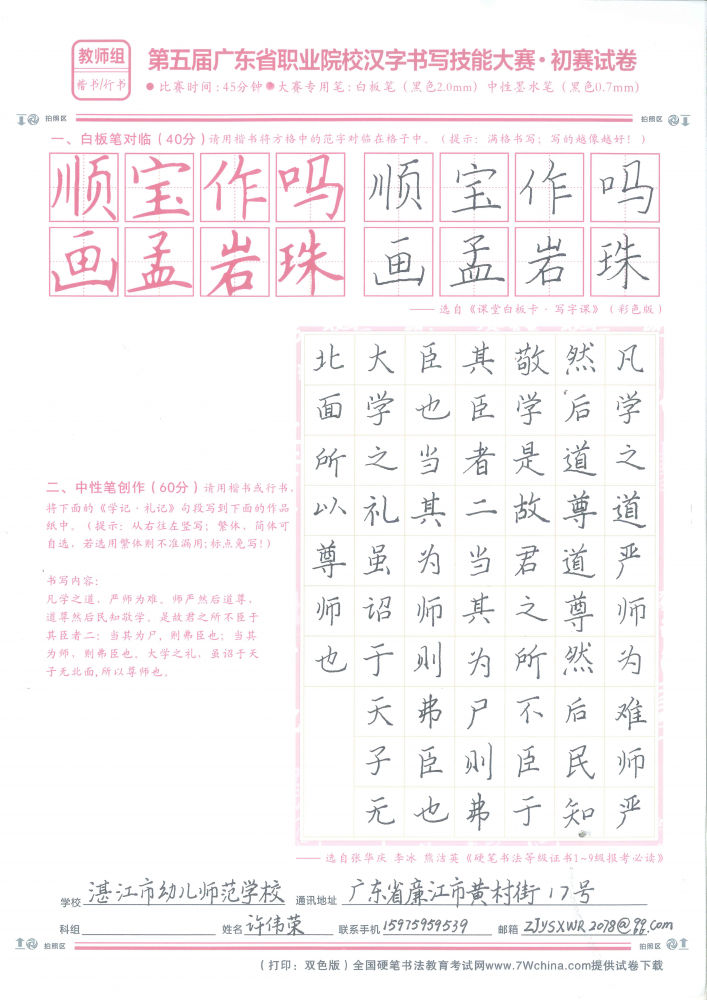 教师组
楷书/行书
第五届广东省职业院校汉字书写技能大赛·初赛试卷
●比赛时间:45分钟●大赛专用笔:白板笔(黑色2.0mm) 中性墨水笔(黑色0.7mm)
拍照区
拍照区
一、白板笔对临(40分)请用楷书将方格中的范字对临在格子中。(提示:满格书写;写的越像越好!)
顺宝作吗 顺宝作吗
画孟岩珠 画孟岩珠
——选自《课堂白板卡·写字课》(彩色版)
二、中性笔创作(60分)请用楷书或行书,
将下面的《学记·礼记》句段写到下面的作品
纸中。(提示:从右往左竖写;繁体、简体可
自选,若选用繁体则不准漏用;标点免写!)
书写内容:
凡学之道,严师为难。师严然后道尊,
道尊然后民知敬学。是故君之所不臣于
其臣者二:当其为尸,则弗臣也;当其
为师,则弗臣也。大学之礼,虽诏于天
子无北面,所以尊师也。
凡学之道严师为难师严
然后道尊道尊然后民知
敬学是故君之所不臣于
其臣者二当其为尸则弗
臣也当其为师则弗臣也
大学之礼虽诏于天子无
北面所以尊师也
——选自张华庆 李冰 熊洁英《硬笔书法等级证书1~9级报考必读》
学校 湛江市幼儿师范学校 通讯地址 广东省廉江市黄村街17号
科组 姓名 许伟荣 联系手机 15975959539 邮箱 ZJYSXWR2078@qq.com
拍照区
拍照区
(打印:双色版)全国硬笔书法教育考试网www.7Wchina.com提供试卷下载